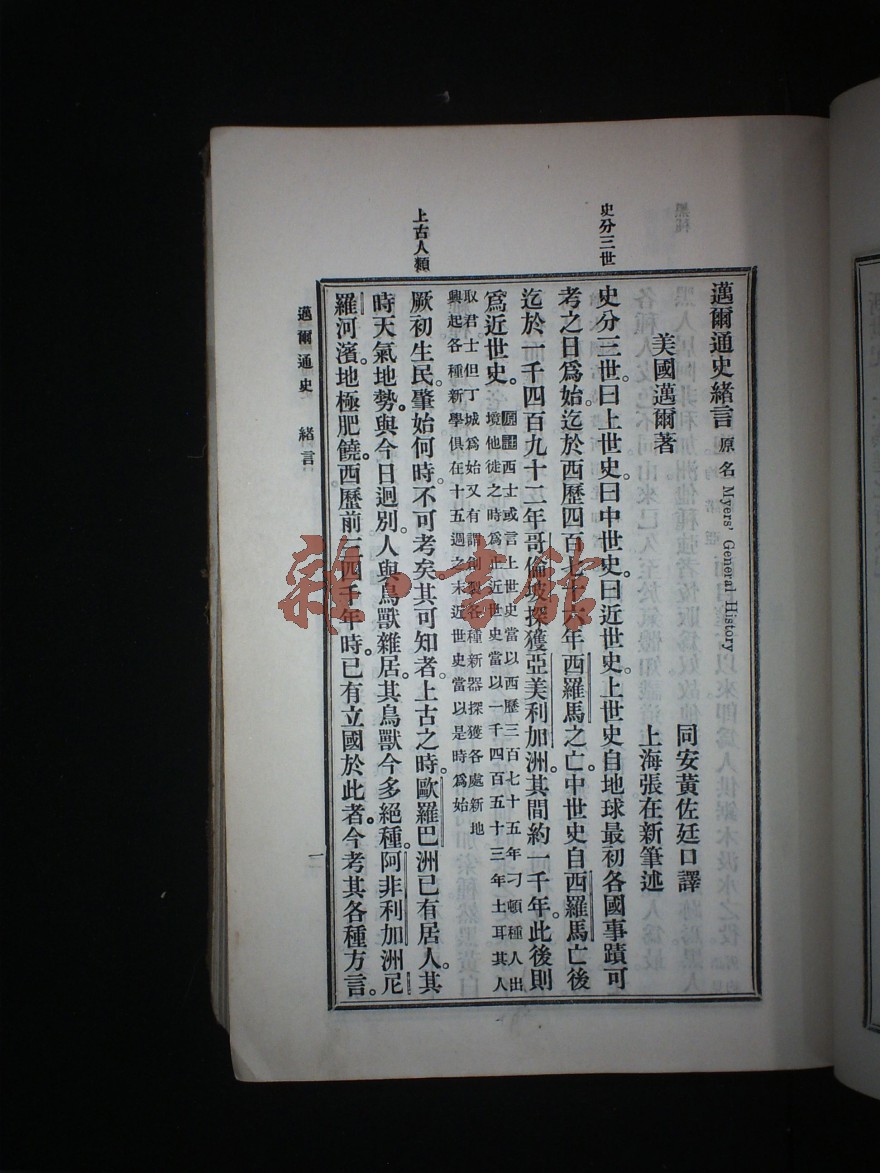 史分三世
上古人類
邁爾通史緒言 原名 Myers' General History
美國邁爾著
同安黃佐廷口譯
上海張在新筆述
史分三世。曰上世史。曰中世史。曰近世史。上世史自地球最初各國事蹟可
考之日爲始。迄於西歷四百七十六年西羅馬之亡。中世史自西羅馬亡後
迄於一千四百九十二年哥倫坡探獲亞美利加洲。其間約一千年。此後則
爲近世史。
西士或言上世史當以西歷三百七十五年刁頓種人出
境他徙之時爲止近世史當以一千四百五十三年土耳其人
取君士但丁城爲始又有謂創製各種新器探獲各處新地
興起各種新學俱在十五週之末近世史當以是時爲始
厥初生民。肇始何時。不可考矣。其可知者。上古之時。歐羅巴洲已有居人。其
時天氣地勢。與今日迥別。人與鳥獸雜居。其鳥獸今多絕種。阿非利加洲尼
羅河濱。地極肥饒。西歷前三四千年時。已有立國於此者。今考其各種方言。
邁爾通史 緒言
雜·書館